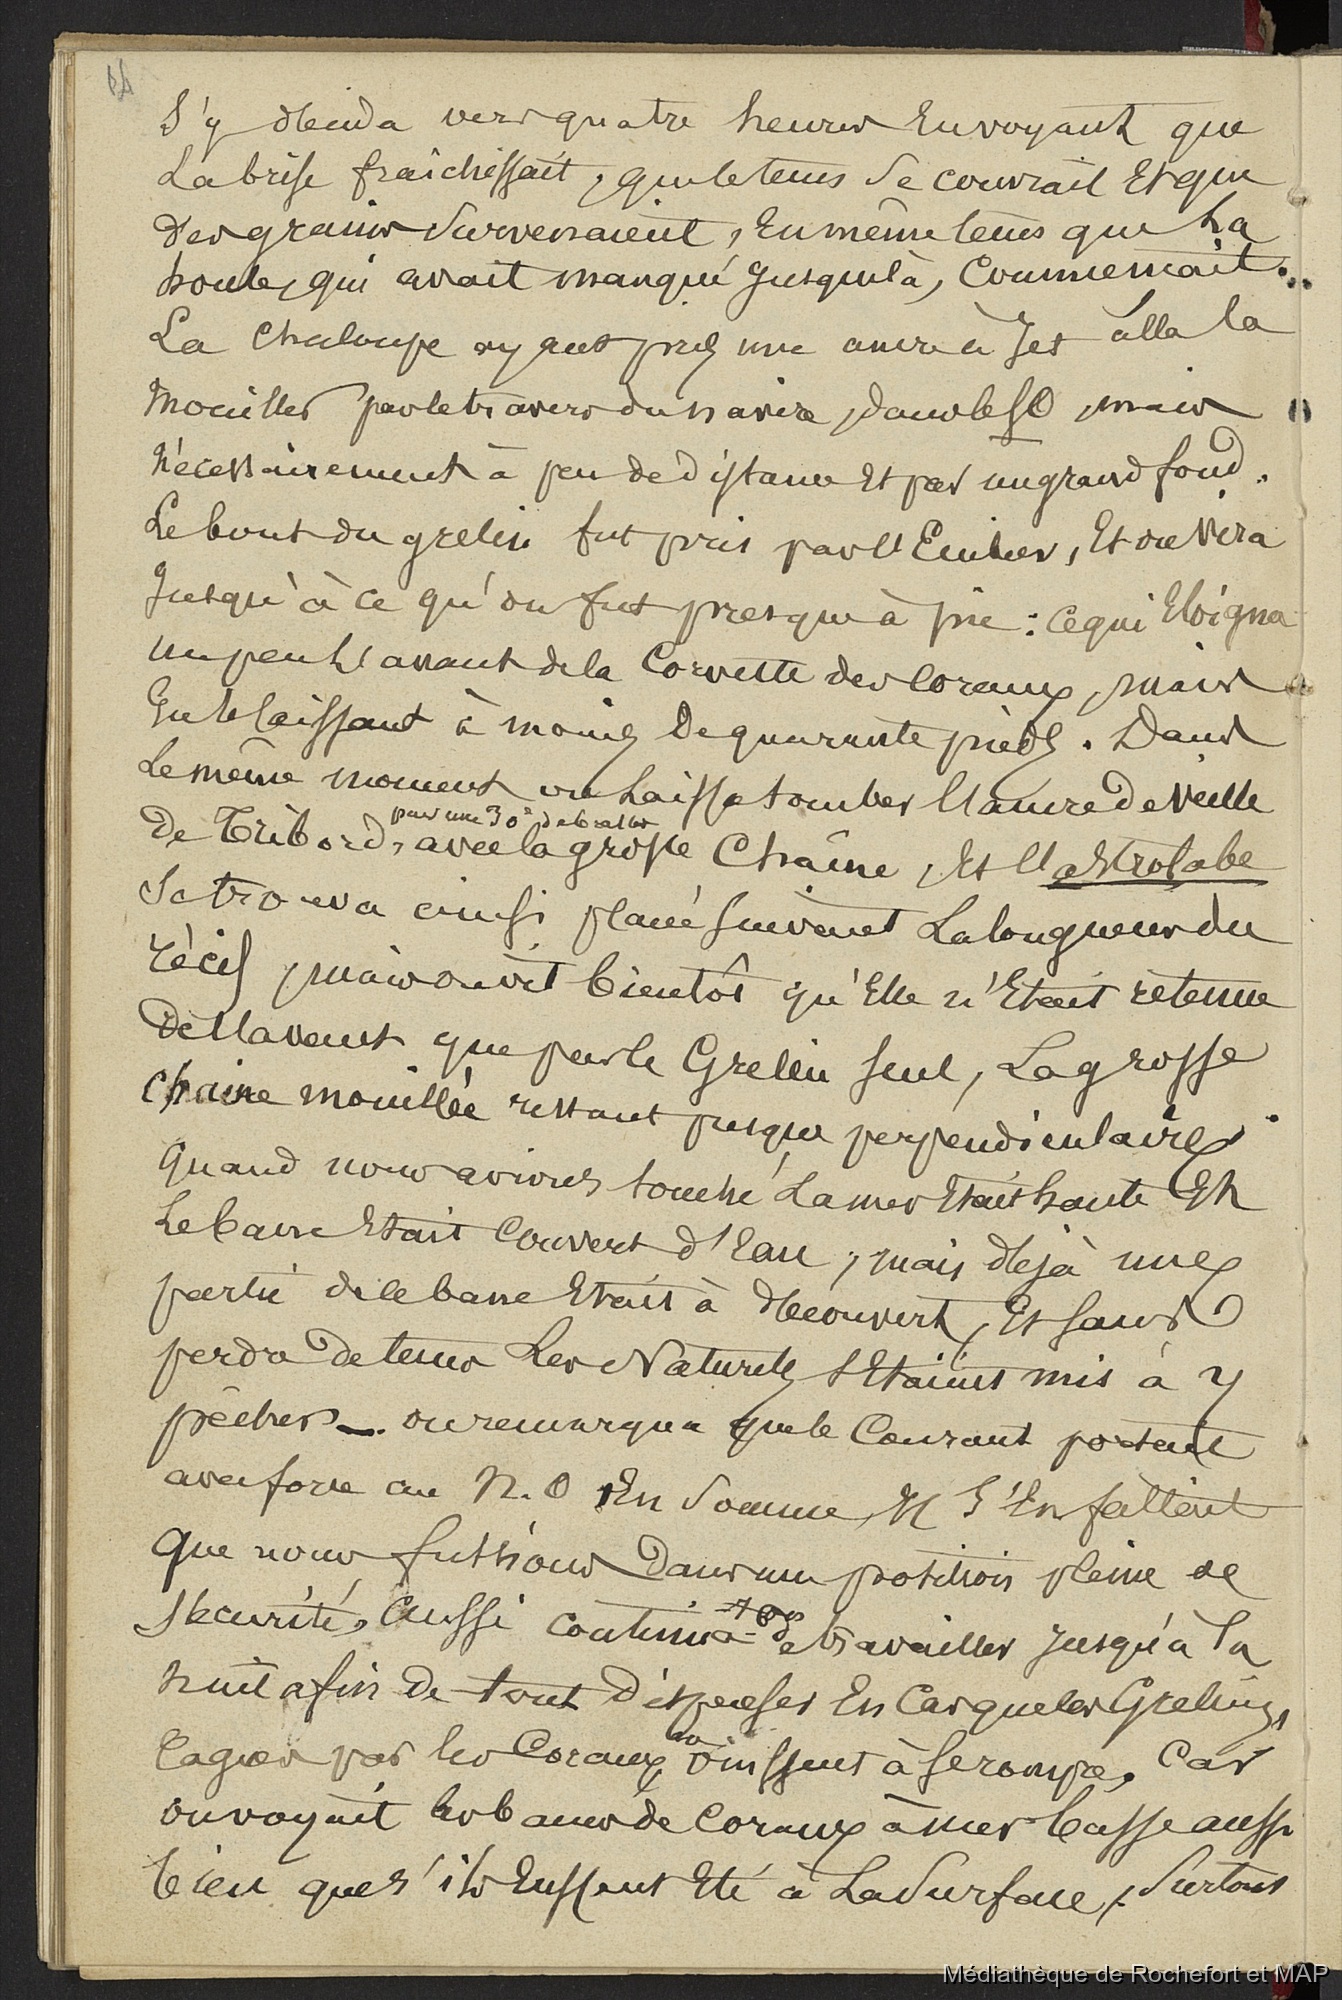 14
s'y décida vers quatre heures En voyant que
La brise fraîchissait, que le tems se couvrait Et que
des grains survenaient, En même tems que La
houle, qui avait manqué Jusque là, Commençait...
La Chaloupe ayant pris une ancre à Jet alla la
Mouiller par le travers du navire, dans le SO, mais
nécessairement à peu de distance Et par un grand fond.
Le bout du grelin fut pris par l'Embier, Et on vira
Jusqu'à ce qu'on fut presque à pic : ce qui Eloigna
un peu l'avant de la Corvette des Coraux, mais
En le laissant à moins De quarante pieds. Dans
Le même moment on Laissa tomber l'ancre De veille
par une 30e de brasses
De Tribord, avec la grosse Chaîne, Et l'astrolabe
se trouva ainsi placée suivant La longueur du
récif, mais on vit bientôt qu'Elle n'Etait retenue
De l'avant que par le Grelin seul, La grosse
Chaine mouillée restant presque perpendiculaire.
Quand nous avions touché La mer Etait haute Et
Le banc Etait Couvert d'Eau, mais déjà une
partie de le banc Etait à découvert, Et sans
perdre De tems Les Naturels s'Etaient mis à y
pêcher — on remarqua que le Courant portait
avec force au N.O En Somme, Il S'En fallait
que nous fussions Dans une position pleine de
Sécurité, Aussi continua-t-on de travailler Jusqu'à la
nuit afin De tout Disposer En Cas que les Grelins,
ragués par les Coraux, vinssent à se rompre. Car
on voyait les bancs de Coraux à mer basse aussi
bien que s'ils Eussent Eté à La Surface, Surtout
Médiathèque de Rochefort et MAP